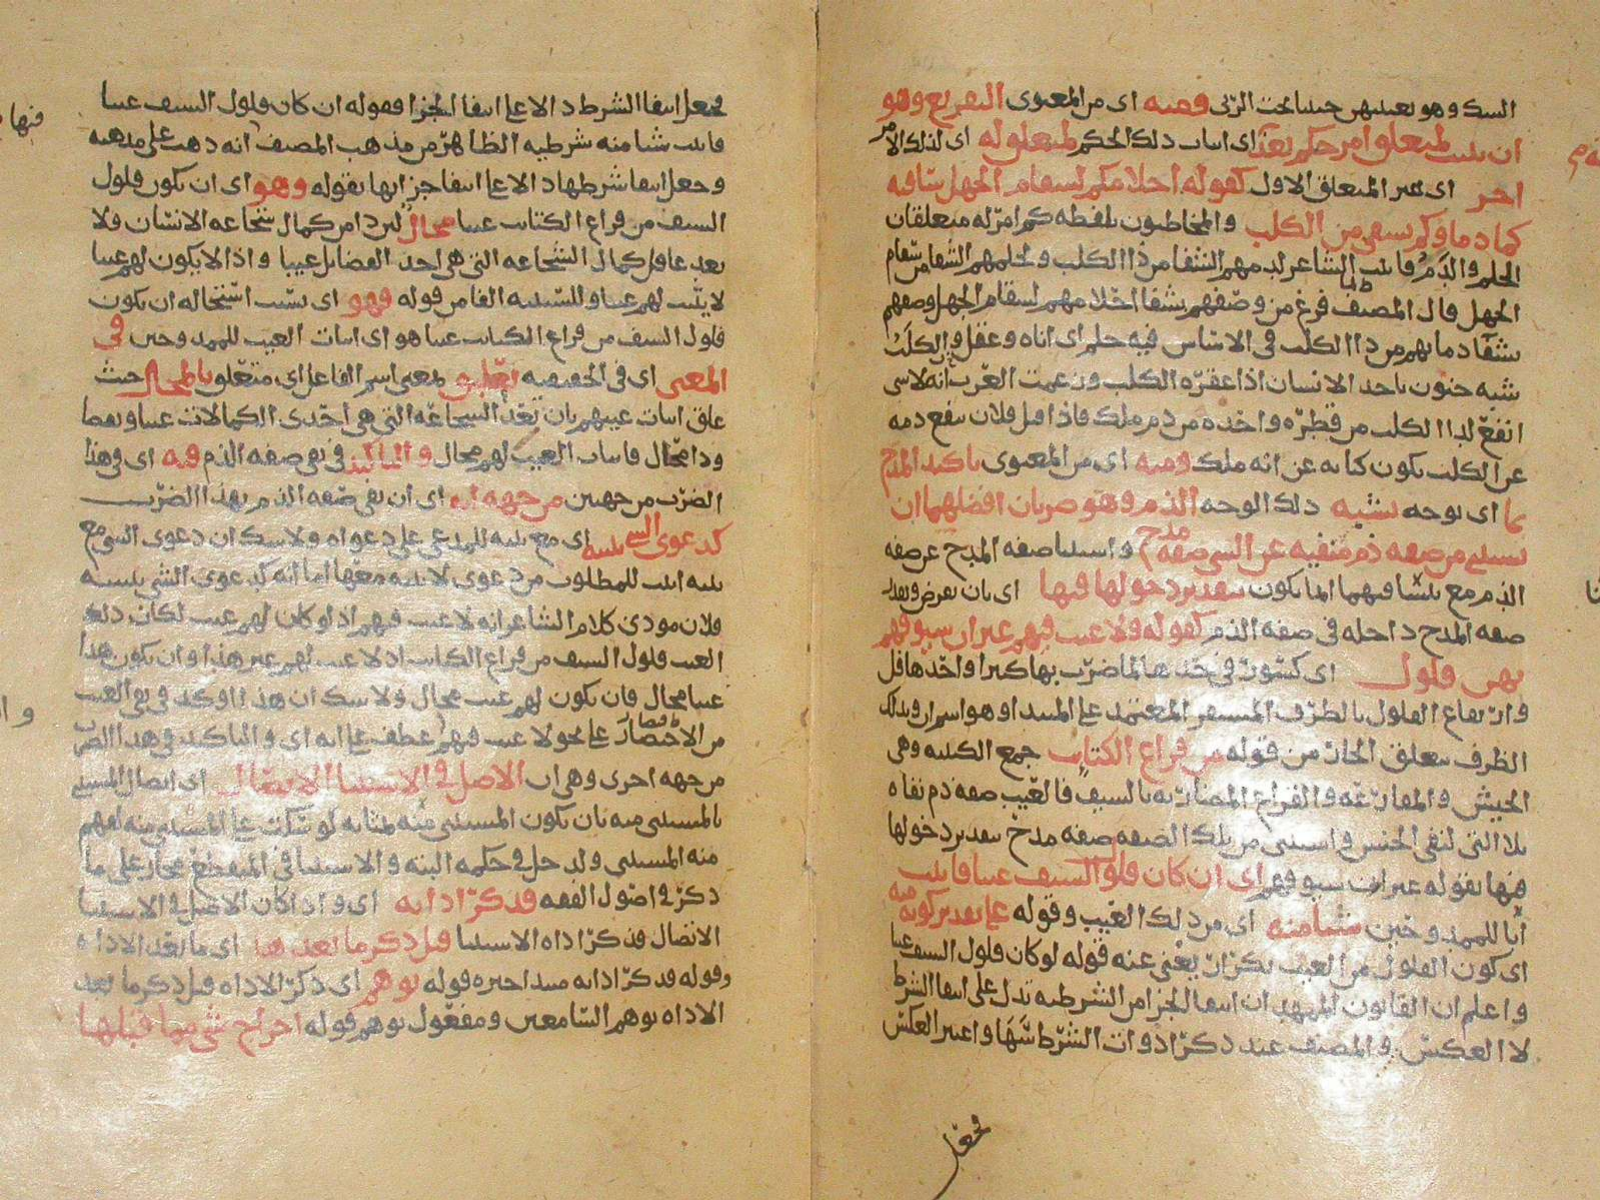 السك وهو تعييبهن حينا تحت الربى ومنه اى من المعنوى التفريع وهو
ان يثبت لمتعلق امر حكم بعد اى اثبات ذلك الحكم لمتعلق له اى لذلك الامر
اخر اى غير المتعلق الاول كقوله احلامكم لسقام الجهل شافيه
كما دماؤكم تشفى من الكلب والمخاطبون بلفظه كم امر له متعلقان
الحلم والدم فاثبت الشاعر لدمهم الشفا من دا الكلب ولحلمهم الشفا من سقام
الجهل قال المصنف فرغ من وصفهم بشفا احلامهم لسقام الجهل وصفهم
بشفا دمائهم من دا الكلب فى الاساس فيه حلم اى اناه وعقل والكلب
شبه جنون ياخد الانسان اذا عقره الكلب وزعمت العرب انه لا شى
انفع لدا الكلب من قطره واخده من دم ملك فاذا قيل فلان ينفع دمه
عن الكلب يكون كنايه عن انه ملك ومنه اى من المعنوى تاكيد المدح
بما اى بوجه يشبه ذلك الوجه الذم وهو ضربان افضلهما ان
يستثنى من صفه ذم منفيه عن الشى صفه مدح واستثنا صفه المدح عن صفه
الذم مع تنافيهما انما يكون بتقدير دخولها فيها اى بان يفرض ويقدر
صفه المدح داخله فى صفه الذم كقوله ولا عيب فيهم غير ان سيوفهم
بهن فلول اى كسور فى حدها لما ضرب بها كثيرا واحدها فل
وارتفاع الفلول بالظرف المستقر المعتمد على المبتدا وهو اسم ان وبذلك
الظرف يتعلق الجار من قوله من قراع الكتايب جمع الكتيبه وهى
الجيش والمقارعه والقراع المضاربه بالسيف فالعيب صفه ذم نفاه
بلا التى لنفى الجنس واستثنى من تلك الصفه صفه مدح بتقدير دخولها
فيها بقوله غير ان سيوفهم اى ان كان فلول السيف عيبا فاثبت
ايا للممدوحين شيئا منه اى من ذلك العيب وقوله على تقدير كونه منه
اى كون الفلول من العيب تكرار يغنى عنه قوله لو كان فلول السيف عيبا
واعلم ان القانون الممهد ان انتفا الجزا من الشرطيه يدل على انتفا الشرط
لا العكس والمصنف عند ذكر ادوات الشرط سها واعتبر العكس
فجعل
فجعل انتفا الشرط دالا على انتفا الجزا فقوله ان كان فلول السيف عيبا
فاثبت شيا منه شرطيه الظاهر من مذهب المصنف انه ذهب على مذهبه
وجعل انتفا شرطها دالا على انتفا جزايها بقوله وهو اى ان يكون فلول
السيف من قراع الكتايب عيبا محال لبرد امر كمال شجاعه الانسان فلا
يعد عاقل كمال الشجاعه التى هى احد الفضايل عيبا واذا لا يكون لهم عيبا
لا يثبت لهم عيبا وللسببيه الفا من قوله فهو اى بسبب استحاله ان يكون
فلول السيف من قراع الكتايب عيبا هو اى اثبات العيب للممدوحين فى
المعنى اى فى الحقيقه تعليق لمعنى اسم الفاعل اى متعلق بالمحال حيث
علق اثبات عيبهم بان تعد الشجاعه التى هى احدى الكمالات عيبا ونقصا
وذا محال فاثبات العيب لهم محال والتاكيد فى نفى صفه الذم فيه اى فى هذا
الضرب من جهتين من جهه انه اى ان نفى صفه الذم بهذا الضرب
كدعوى الشى ببينه اى مع بينه للمدعى على دعواه ولا شك ان دعوى الشى مع
بينه اثبت للمطلوب من دعوى لا بينه معها اما انه كدعوى الشى ببينه
فلان مودى كلام الشاعر انه لا عيب فيهم اذ لو كان لهم عيب لكان ذلك
العيب فلول السيف من قراع الكتايب اذ لا عيب لهم غير هذا وان يكون هذا
عيبا محال فان يكون لهم عيب محال ولا شك ان هذا اوكد فى نفى العيب
من الاختصار على نحو لا عيب فيهم عطف على انه اى والتاكيد فى هذا الضرب
من جهه اخرى وهى ان الاصل فى الاستثنا الاتصال اى اتصال المستثنى
بالمستثنى منه بان يكون المستثنى منه بمثابه لو سكت على المستثنى منه لفهم
منه المستثنى ولدخل فى حكمه البته والاستثنا فى المنقطع مجاز على ما
ذكر فى اصول الفقه فذكر اداته اى واذا كان الاصل فى الاستثنا
الاتصال فذكر اداه الاستثنا قبل ذكر ما بعدها اى ما بعد الاداه
وقوله فذكر اداته مبتدا خبره قوله يوهم اى ذكر الاداه قبل ذكر ما بعد
الاداه يوهم السامعين ومفعول يوهم قوله اخراج شى مما قبلها